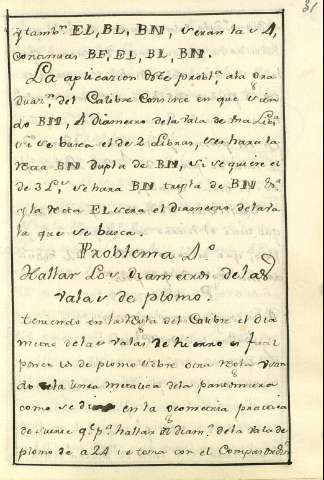 31
y tamb.n EL, BL, BN, seran las 4,
continuas BF, EL, BL, BN.
La aplicazion deste probl.a ala gra
duaz.n del Calibre Consiste en que sien
do BN, el diametro dela vala de una Lib.a
si se busca el de 2 Libras, se hara la
recta BN dupla de BN, si se quiere el
de 3 L.s se hara BN tripla de BN &.a
y la recta EL sera el diametro dela va
la que se busca.
Problema 4.o
Hallar Los diametros de las
valas de plomo.
teniendo en la Regla del Calibre el dia
metro delas valas de hierro es facil
poner los de plomo sobre otra regla usan
do la linea metalica dela pantometra
como se dijo en la Geometria practica
de suerte q.e p.a hallar el diam.o de la vala de
plomo de a 24 se toma con el Compas